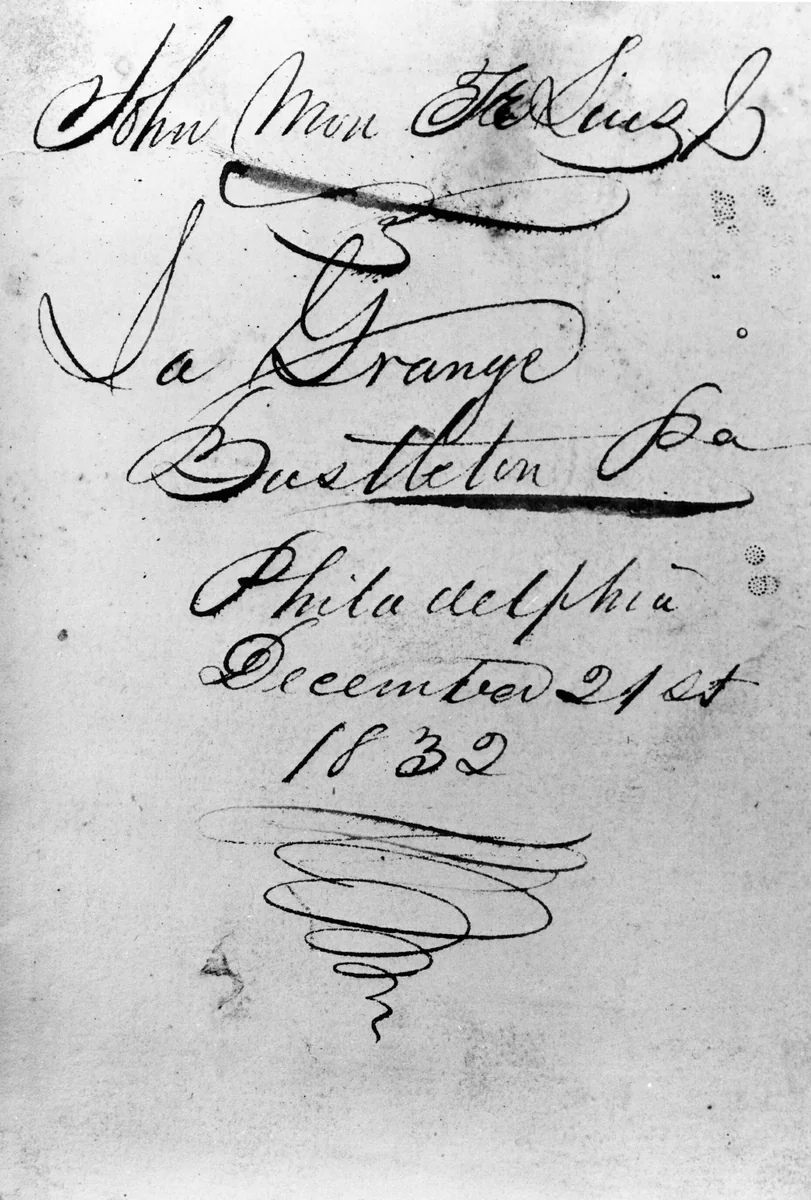 John Mon Te Lius Jr
La Grange
Bustleton Pa
Philadelphia
December 21st
1832